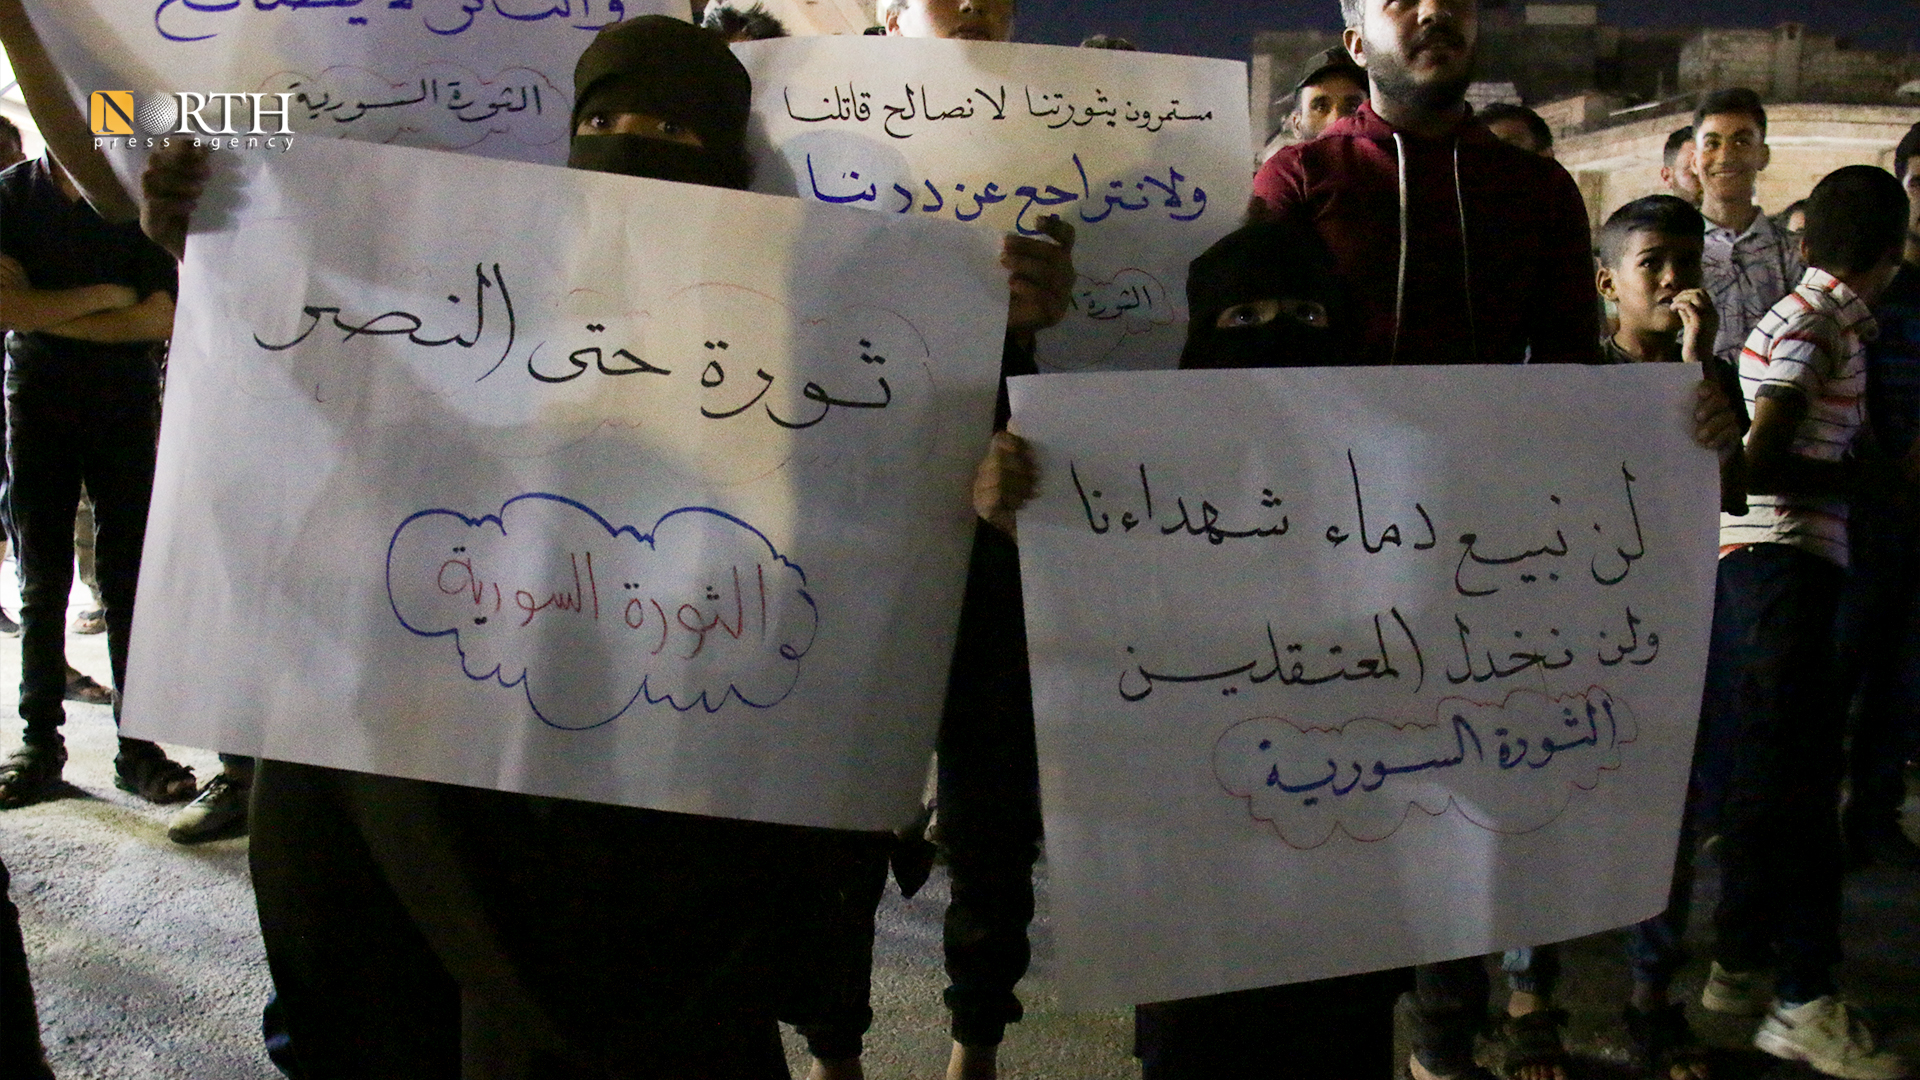 NORTH
press agency
الثورة السورية
مستمرون بثورتنا لا نصالح قاتلنا
ولا نتراجع عن دربنا
الثورة
ثورة حتى النصر
الثورة السورية
لن نبيع دماء شهداءنا
ولن نخدل المعتقلين
الثورة السورية